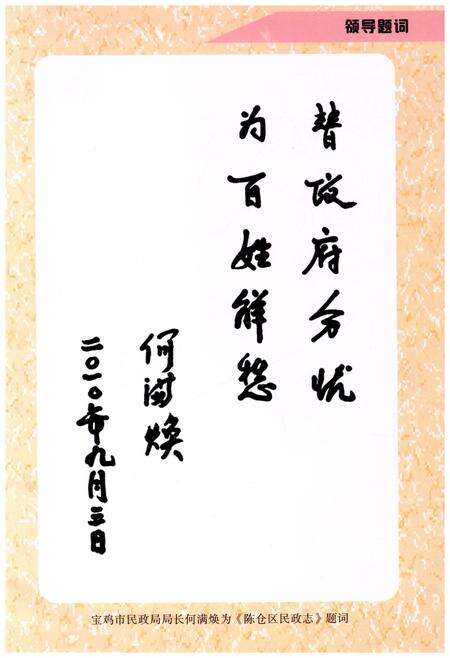 领导题词
替政府分忧
为百姓解愁
何满焕
二〇一〇年九月三日
宝鸡市民政局局长何满焕为《陈仓区民政志》题词